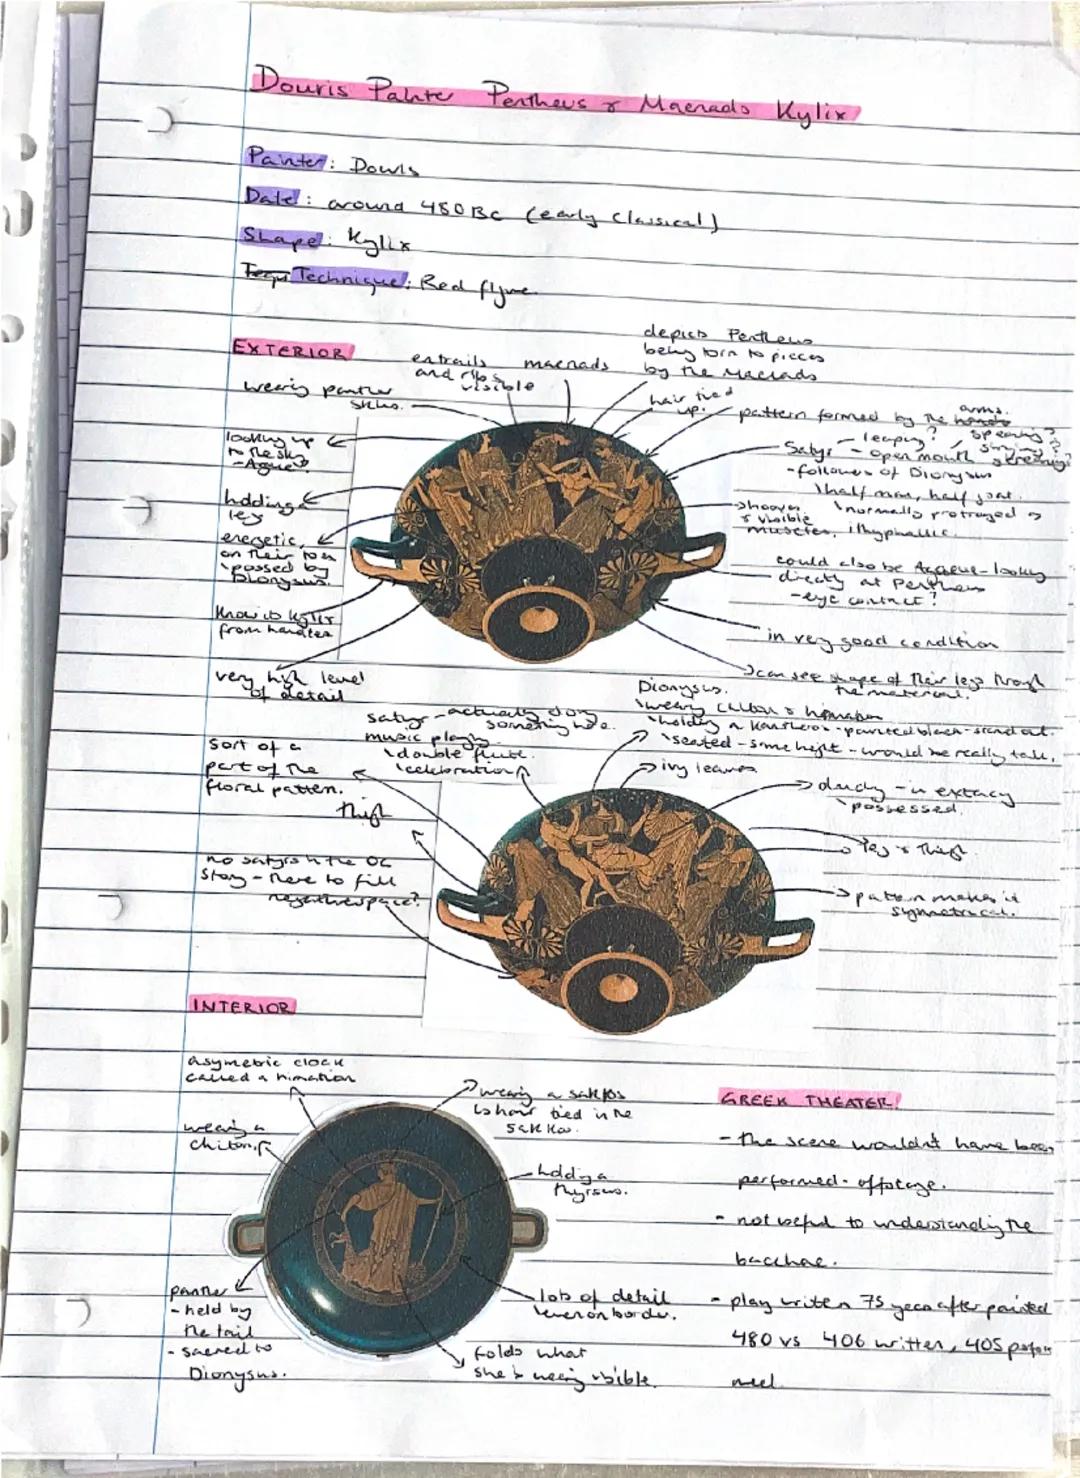 Douris Painter Pentheus & Maenads Kylix
Painter: Douris
Date: around 480 BC (early Classical)
Shape: Kylix
Technique: Red figure
EXTERIOR
entrails
and ribs
visible
maenads
depicts Pentheus
being torn to pieces
by the Maenads
wearing panther
skins.
hair tied
up.
pattern formed by the hands
arms.
looking up
to the sky
- Agave?
Satyr
- leaping?
- open mouth
speaking?
singing?
screaming?
- followers of Dionysus
half man, half goat.
normally protrayed as
ithyphallic.
hooves
& visible
muscles.
holding
leg
energetic,
on their toes
possed by
Dionysus.
could also be Agave - looking
directly at Pentheus
- eye contact?
know is kylix
from handles
in very good condition
very high level
of detail
can see shape of their legs through
the material.
Dionysus.
wearing chiton & himation
holding a kantharos - painted black - stand out.
seated - same height - would be really tall.
satyr - actually doing
something here.
music playing.
double flute.
celebration
sort of a
part of the
floral patten.
ivy leaves
thigh
dancing - in extacy
possessed.
leg & thigh.
no satyrs in the OG
story - here to fill
negative space?
pattern makes it
symmetrical.
INTERIOR
asymetric cloak
called a himation
wearing a sakkos
hair tied in the
sakkos.
wearing a
chiton.
holding a
thyrsus.
panther
- held by
the tail
- sacred to
Dionysus.
lots of detail
even on border.
folds what
she's wearing visible.
GREEK THEATER!
- the scene wouldn't have been
performed - offstage.
- not useful to understanding the
bacchae.
- play writen 75 years after painted
480 vs 406 written, 405 perfor
med.